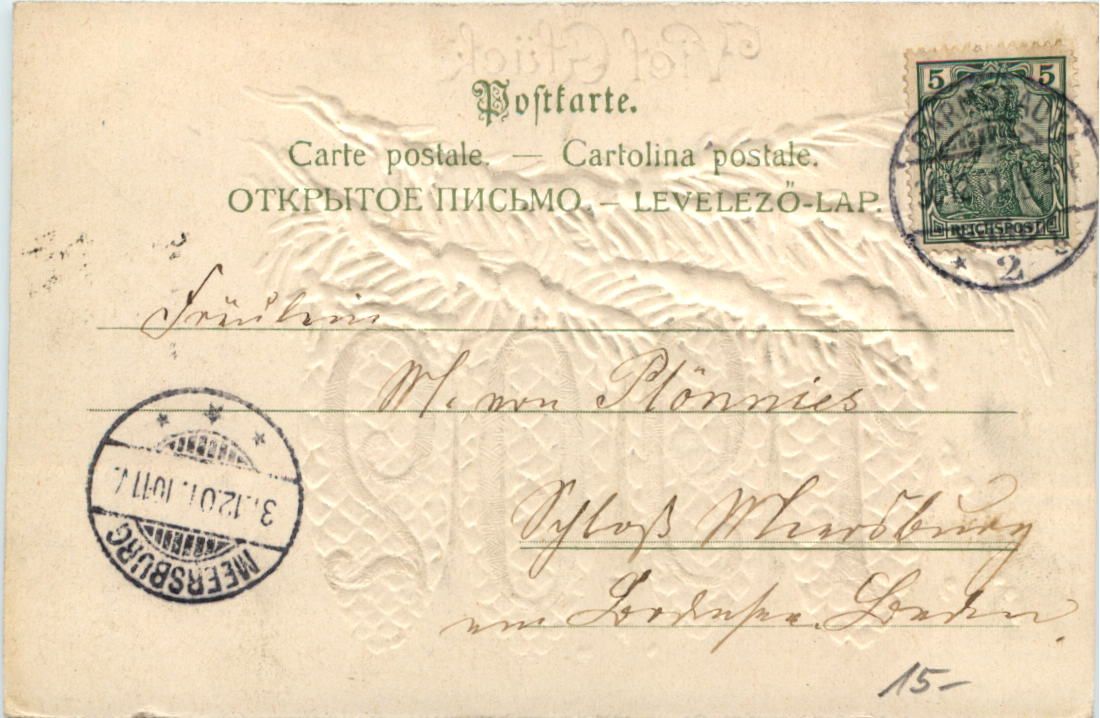 Viel Glück
Postkarte.
Carte postale. — Cartolina postale.
ОТКРЫТОЕ ПИСЬМО. — LEVELEZŐ-LAP.
5 5
REICHSPOST
2
Fräulein
M. von Plönnies
Schloß Meersburg
am Bodensee. Baden.
MEERSBURG
31.12.01.10-11
15-